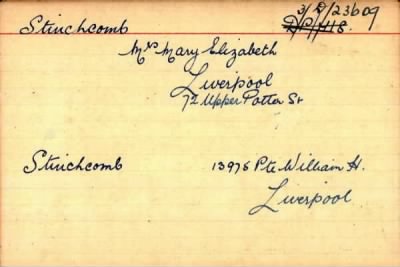 Stinchcomb 3/D/23609
D/P/418.
Mrs Mary Elizabeth
Liverpool
72 Upper Potter St
Stinchcomb 13975 Pte William H.
Liverpool